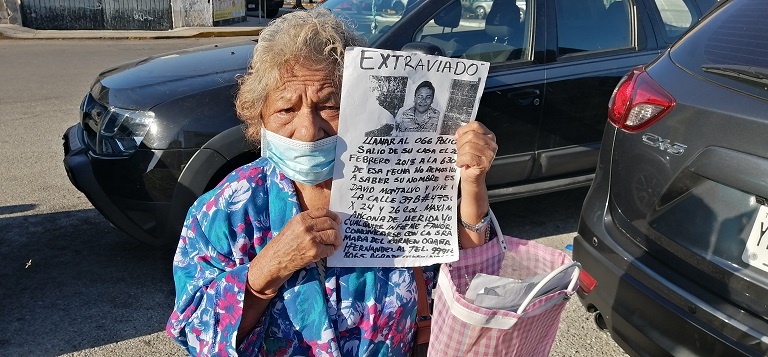 EXTRAVIADO
LLAMAR AL 066 POLIC
SALIO DE SU CASA EL 2
FEBRERO 2013 A LA 630
DE ESA FECHA NO HEMOS
A SABER SU NOMBRE ES
DAVID MONTALVO Y VIVE
LA CALLE 37B #475D
X 24 y 26 COL. MAXIM
ANCONA DE MERIDA YU
CUALQUIER INFORME FAVOR
COMUNICARSE CON LA SRA
MARIA DEL CARMEN
FERNANDEZ AL TEL. 999
CX-5